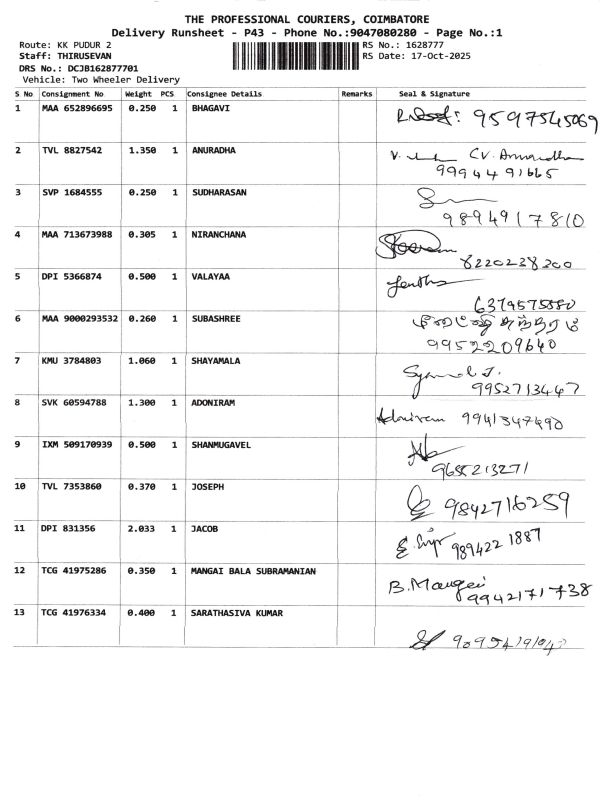 THE PROFESSIONAL COURIERS, COIMBATORE
Delivery Runsheet - P43 - Phone No.:9047080280 - Page No.:1
Route: KK PUDUR 2 RS No.: 1628777
Staff: THIRUSEVAN RS Date: 17-Oct-2025
DRS No.: DCJB162877701
Vehicle: Two Wheeler Delivery
S No Consignment No Weight PCS Consignee Details Remarks Seal & Signature
1 MAA 652896695 0.250 1 BHAGAVI 9597545069
2 TVL 8827542 1.350 1 ANURADHA CV. Anuradha
9994491665
3 SVP 1684555 0.250 1 SUDHARASAN
9894917810
4 MAA 713673988 0.305 1 NIRANCHANA
8220238300
5 DPI 5366874 0.500 1 VALAYAA
6379575880
6 MAA 9000293532 0.260 1 SUBASHREE
9952209640
7 KMU 3784803 1.060 1 SHAYAMALA
9952713447
8 SVK 60594788 1.300 1 ADONIRAM Adoniram 9941347490
9 IXM 509170939 0.500 1 SHANMUGAVEL
9655213271
10 TVL 7353860 0.370 1 JOSEPH 9842716259
11 DPI 831356 2.033 1 JACOB 9894221887
12 TCG 41975286 0.350 1 MANGAI BALA SUBRAMANIAN B. Mangai
9942171738
13 TCG 41976334 0.400 1 SARATHASIVA KUMAR